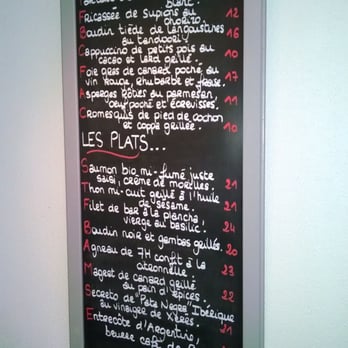 blanc.
Fricassée de supions au 12
chorizo.
Boudin tiède de langoustines 16
au tandoori
Cappuccino de petits pois au 10
cacao et lard grillé.
Foie gras de canard poché au 17
vin rouge, rhubarbe et fraise.
Asperges rôties au parmesan, 11
oeuf poché et écrevisses.
Cromesquis de pied de cochon 10
et coppa grillée.
LES PLATS...
Saumon bio mi-fumé juste
saisi, crème de morilles. 21
Thon mi-cuit grillé à l'huile
de sésame. 21
Filet de bar à la plancha, 24
vierge au basilic.
Boudin noir et gambas grillés. 20
Agneau de 7H confit à la 23
citronnelle
Magret de canard grillé 22
au pain d'épices.
Secreto de "Pata Negra" Ibérique
au vinaigre de Xérès. 21
Entrecôte d'Argentine,
beurre café de